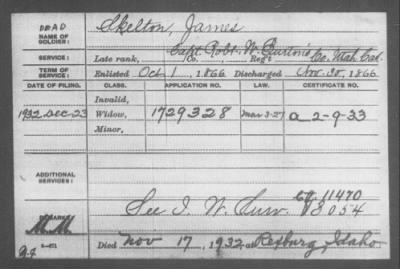 DEAD
NAME OF SOLDIER: Skelton, James
SERVICE: Late rank, Capt. Robt. W. Burton's Co. Utah Cav.
Co., Reg't
TERM OF SERVICE: Enlisted Oct 1, 1866 Discharged Nov. 30, 1866
DATE OF FILING. CLASS. APPLICATION NO. LAW. CERTIFICATE NO.
Invalid,
1932 Dec-23 Widow, 1729328 Mar 3-27 a 2-9-33
Minor,
ADDITIONAL SERVICES:
11470
See I. W. Surv. 13054
REMARKS
M.M.
Died Nov 17, 1932 at Rexburg, Idaho.